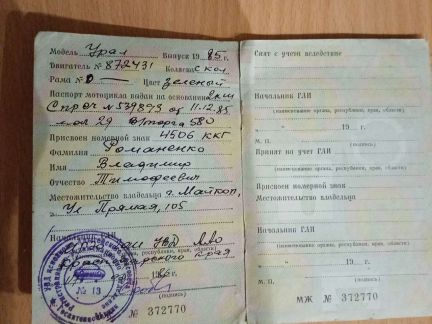 Модель Урал Выпуск 1985 г.
Двигатель № 872431 Коляска с кол.
Рама № 0 — Цвет зеленый
Паспорт мотоцикла выдан на основании
Спр сч № 539873 от 11.12.85
маг 29 торга 580
Присвоен номерной знак 4506 ККГ
Фамилия Романенко
Имя Владимир
Отчество Тимофеевич
Местожительство владельца г. Майкоп,
ул Прямая, 105
УВД
края
№ 13
(подпись)
№ 372770
Снят с учета вследствие
Начальник ГАИ
(наименование органа, республики, края, области)
„ “ 19 г.
М. П. (подпись)
Принят на учет ГАИ
(наименование органа, республики, края, области)
Присвоен номерной знак
Местожительство владельца
Начальник ГАИ
(наименование органа, республики, края, области)
„ “ 19 г.
М. П. (подпись)
МЖ № 372770